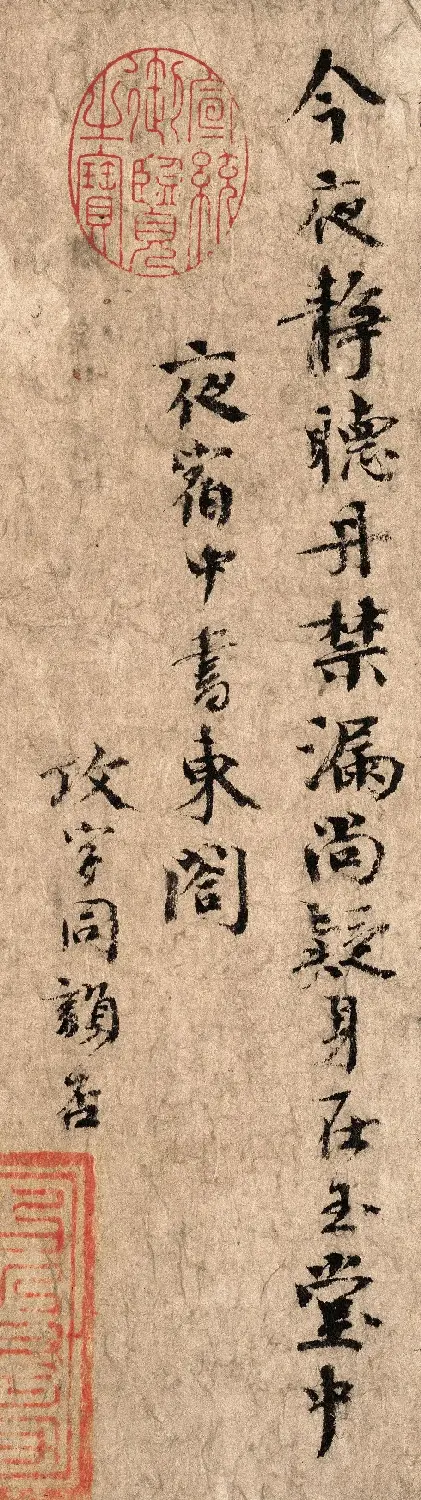 今夜靜聽丹禁漏尚疑身在玉堂中
夜宿中書東閣
攻字同韻否
宣統御覽之寶